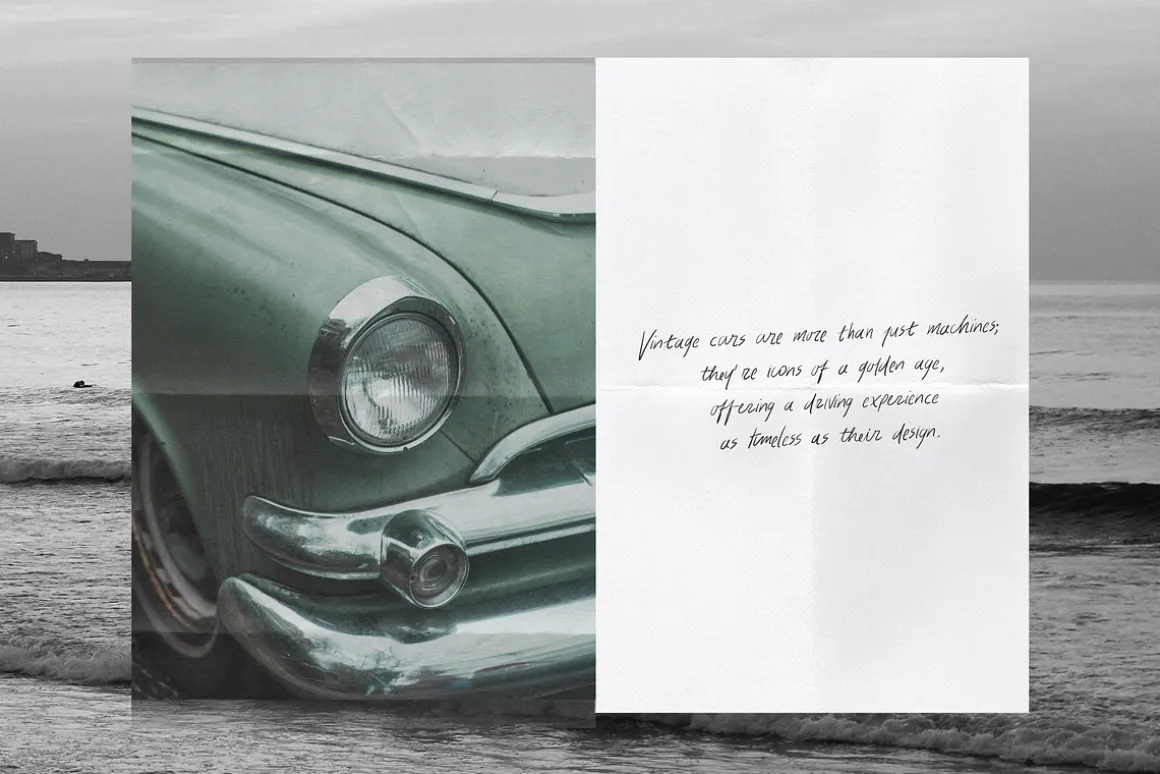 Vintage cars are more than just machines;
they're icons of a golden age,
offering a driving experience
as timeless as their design.